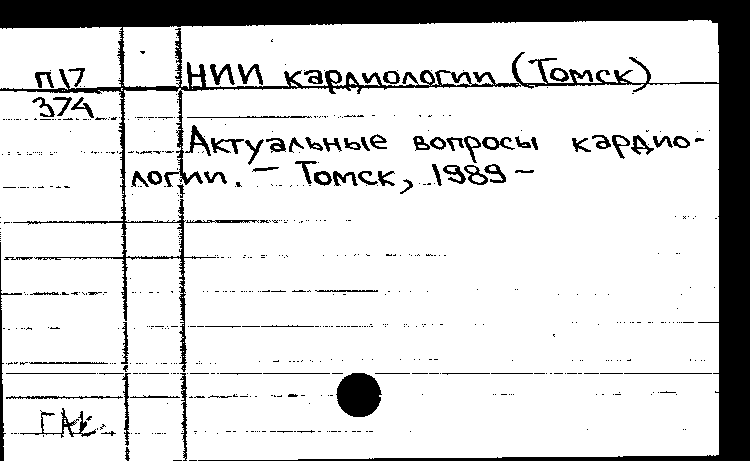 П17
374
НИИ кардиологии (Томск)
Актуальные вопросы кардио-
логии. — Томск, 1989 —
ГАК.